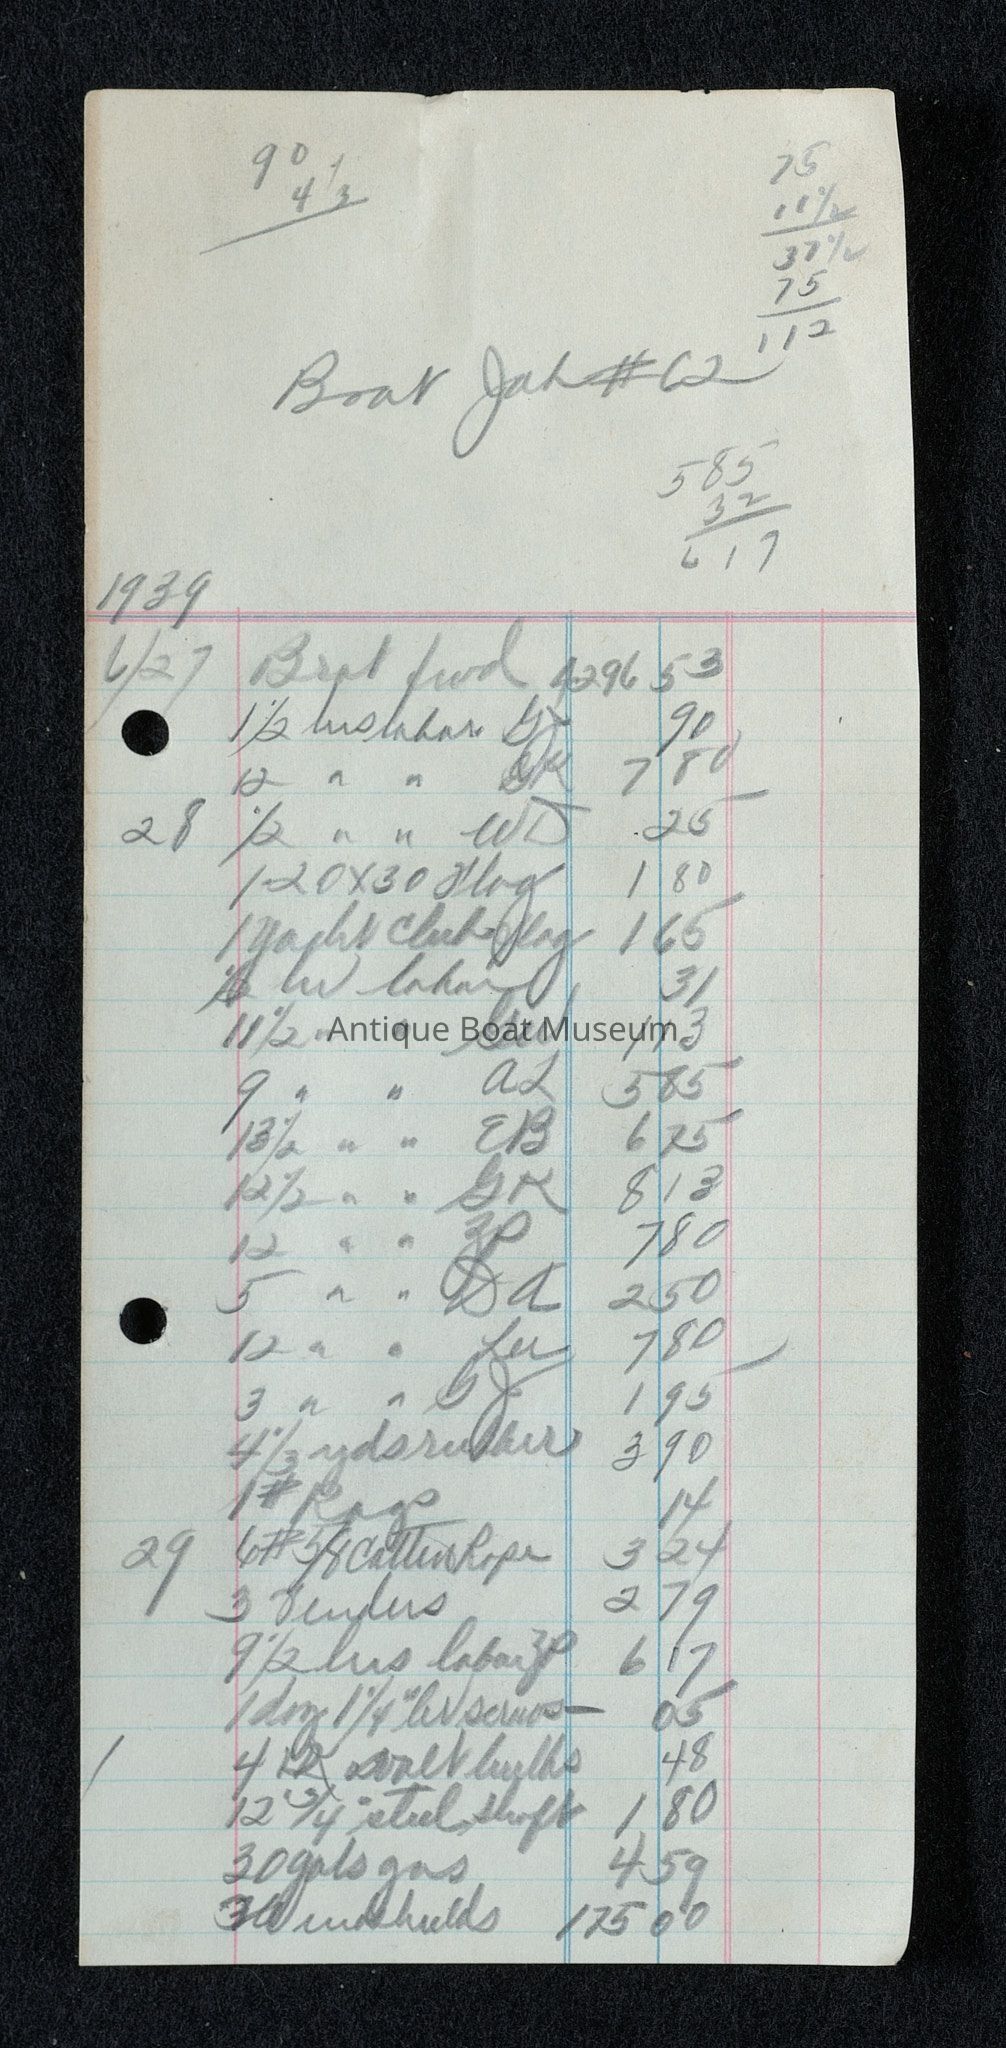 90
4 1/3
75
11 1/2
37 1/2
75
112
Boat Job #62
585
32
617
1939
6/27 Brot fwd 4296 53
1 1/2 hrs labor GJ 90
12 " " GK 7 80
28 1/2 " " WD 25
1-20X30 Flag 1 80
1 Yacht Club Flag 1 65
hr labor 31
11 1/2 " 1 13
Antique Boat Museum
9 " " AL 5 85
13 1/2 " " EB 6 75
12 1/2 " " GK 8 13
12 " " ZP 7 80
5 " " DA 2 50
12 " " Lee 7 80
3 " " GJ 1 95
4 1/3 yds rubber 3 90
1# Rags 14
29 6# 5/8 Cotton Rope 3 24
3 Fenders 2 79
9 1/2 hrs labor ZP 6 17
1 doz 1 1/4" br screws 05
1 4 12 volt bulbs 48
12" 3/4" steel shaft 1 80
30 gals gas 4 59
3 Windshields 175 00